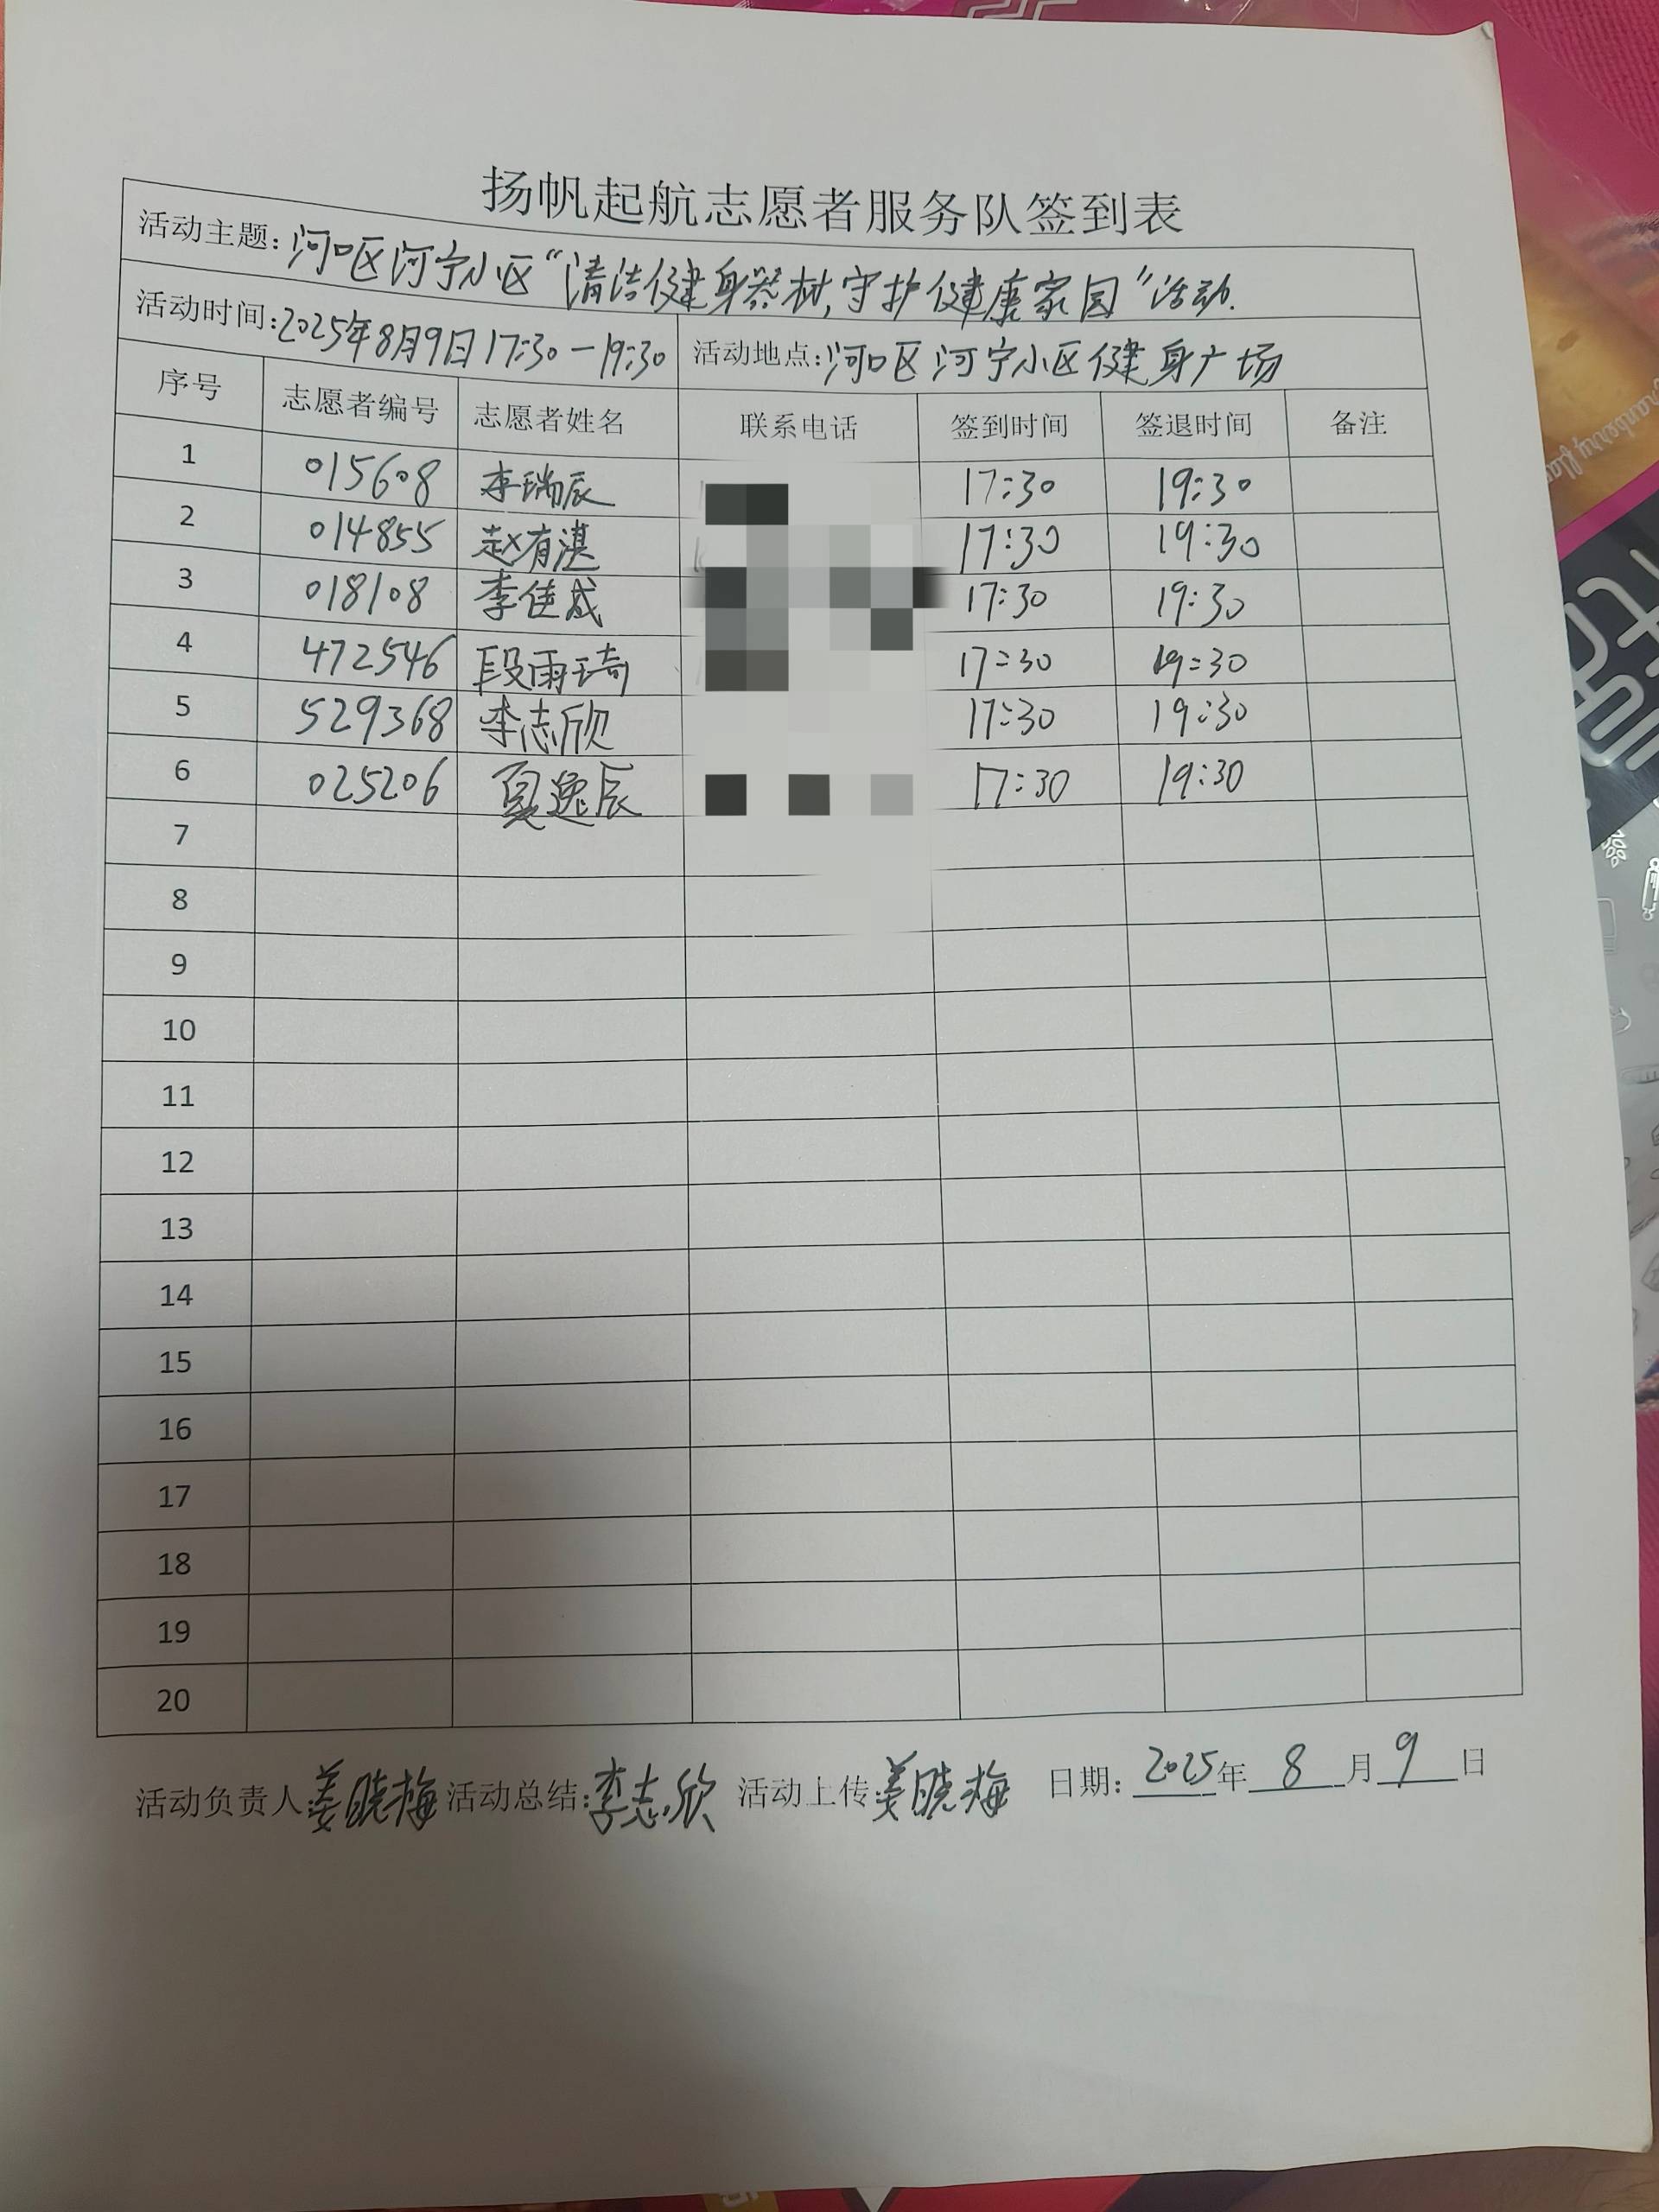 扬帆起航志愿者服务队签到表
活动主题:河口区河宁小区“清洁健身器材,守护健康家园”活动.
活动时间:2025年8月9日17:30-19:30 活动地点:河口区河宁小区健身广场
序号 志愿者编号 志愿者姓名 联系电话 签到时间 签退时间 备注
1 015608 李瑞辰 17:30 19:30
2 014855 赵有湛 17:30 19:30
3 018108 李佳成 17:30 19:30
4 472546 段雨琦 17:30 19:30
5 529368 李志欣 17:30 19:30
6 025206 夏逸辰 17:30 19:30
7
8
9
10
11
12
13
14
15
16
17
18
19
20
活动负责人:姜晓梅 活动总结:李志欣 活动上传:姜晓梅 日期:2025年8月9日